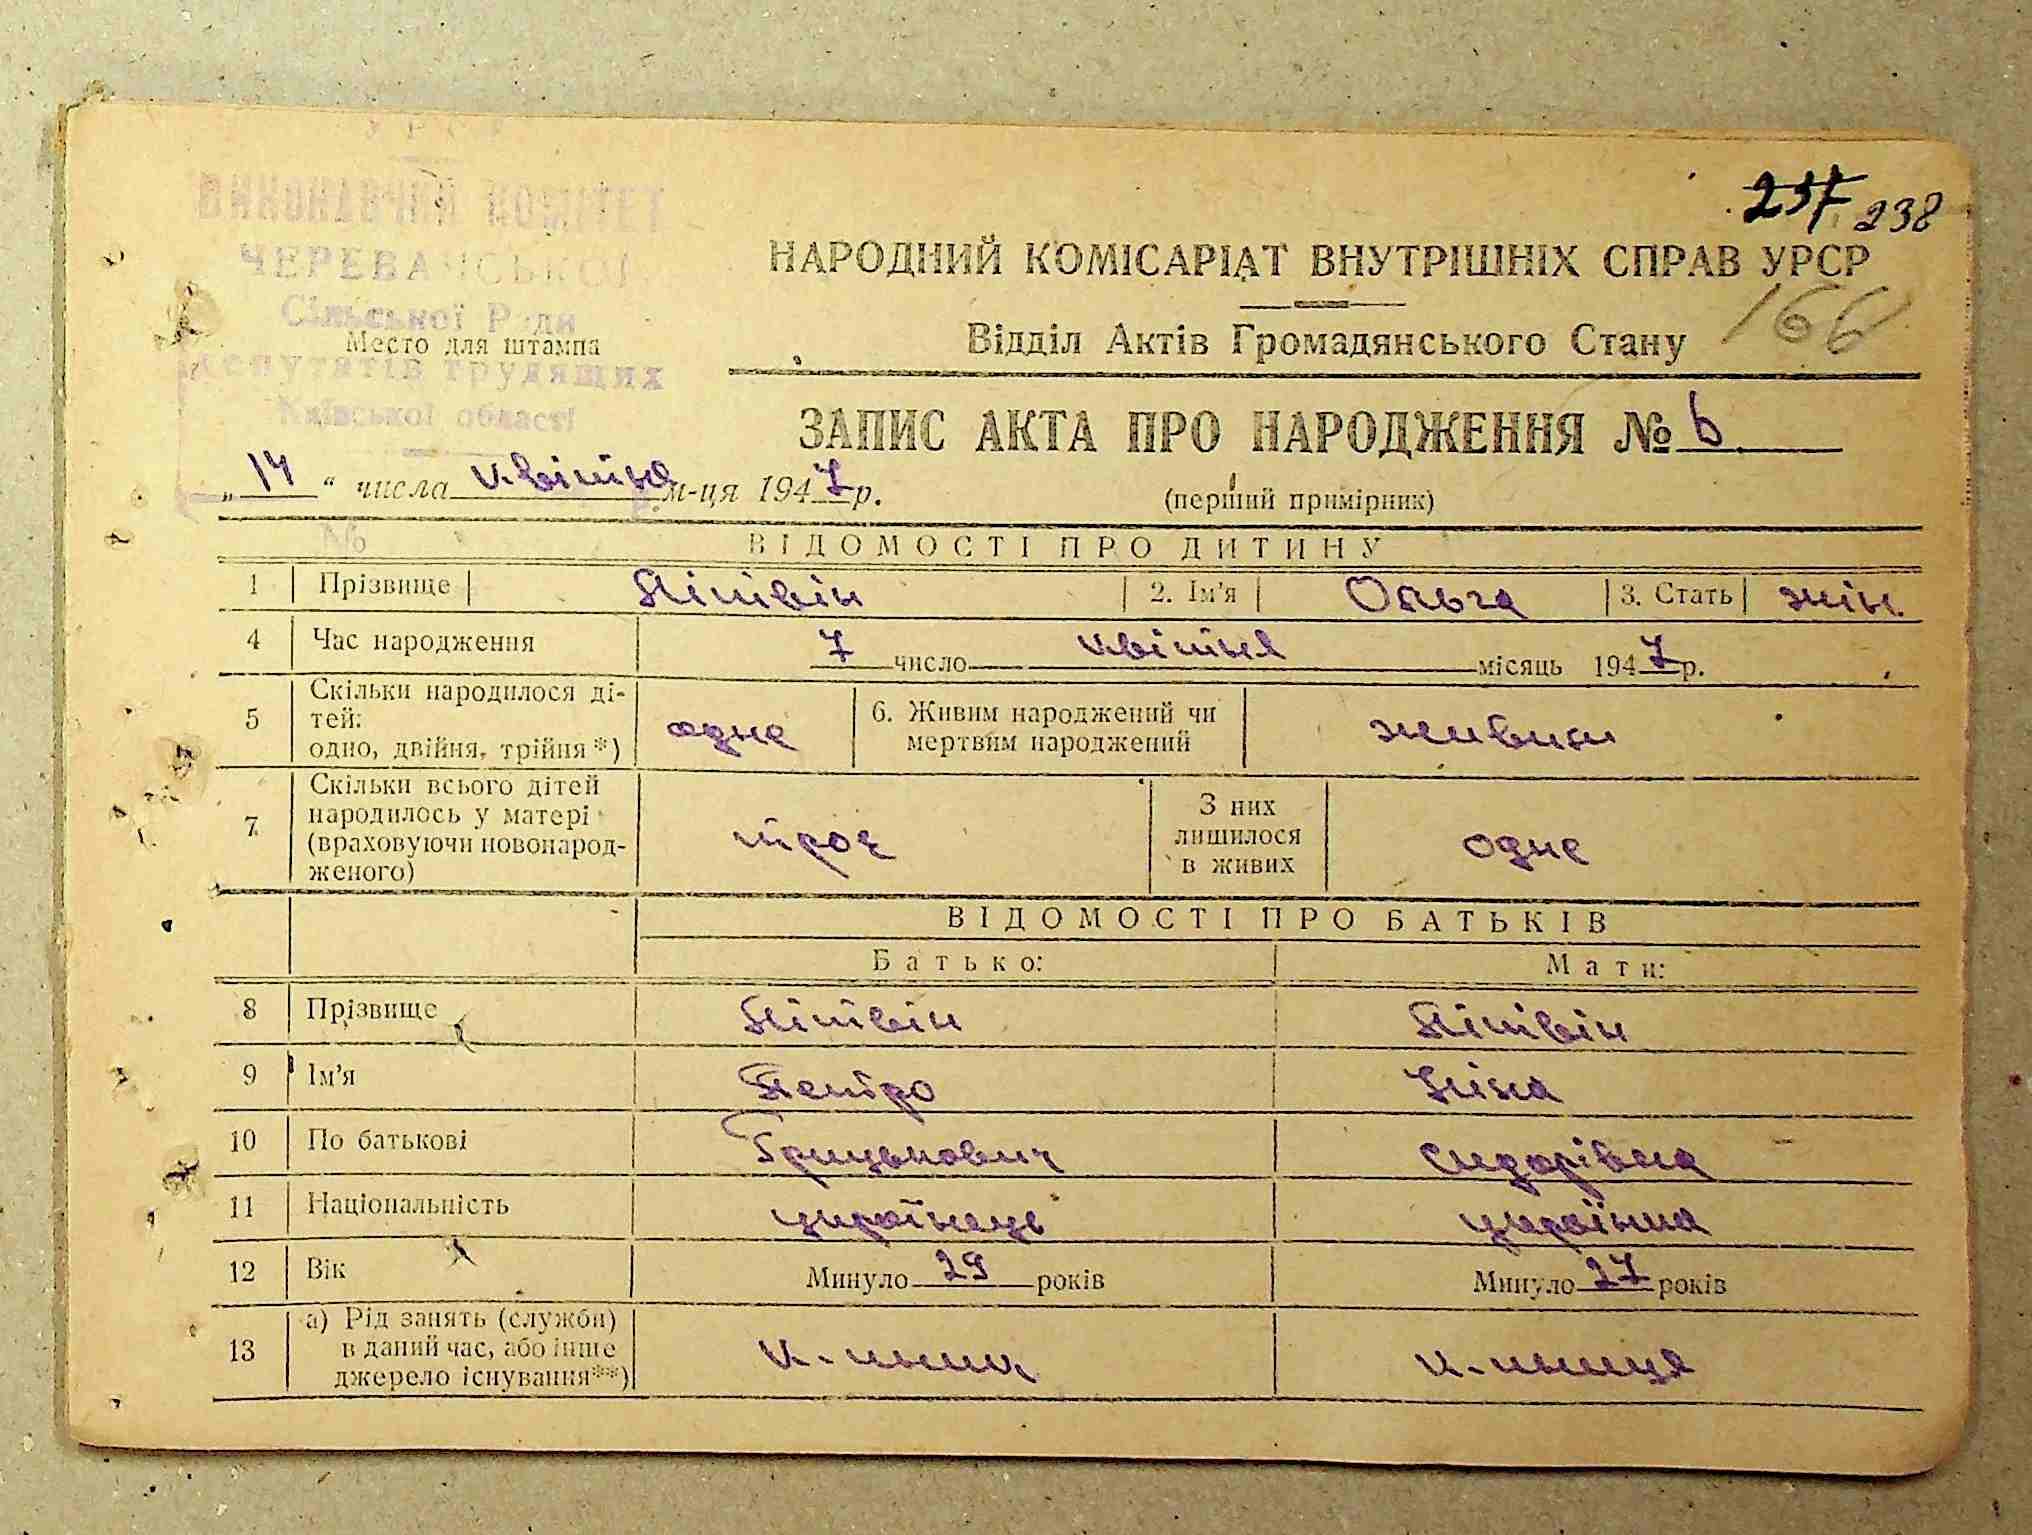 УРСР
ВИКОНАВЧИЙ КОМІТЕТ
ЧЕРЕВАНСЬКОЇ
Сільської Ради
Место для штампа
депутатів трудящих
Київської області
№
237 238
НАРОДНИЙ КОМІСАРІАТ ВНУТРІШНІХ СПРАВ УРСР
166
Відділ Актів Громадянського Стану
ЗАПИС АКТА ПРО НАРОДЖЕННЯ № 6
„14“ числа квітня м-ця 1947 р.
(перший примірник)
ВІДОМОСТІ ПРО ДИТИНУ
1 Прізвище Літвін 2. Ім'я Ольга 3. Стать жін.
4 Час народження 7 число квітня місяць 1947 р.
5 Скільки народилося ді-
тей:
одно, двійня, трійня*) одне 6. Живим народжений чи
мертвим народжений живим
7 Скільки всього дітей
народилось у матері
(враховуючи новонарод-
женого) троє З них
лишилося
в живих одне
ВІДОМОСТІ ПРО БАТЬКІВ
Батько: Мати:
8 Прізвище Літвін Літвін
9 Ім'я Петро Ніна
10 По батькові Грицькович Сидорівна
11 Національність українець українка
12 Вік Минуло 29 років Минуло 27 років
13 а) Рід занять (служби)
в даний час, або інше
джерело існування**) к-ник к-ниця